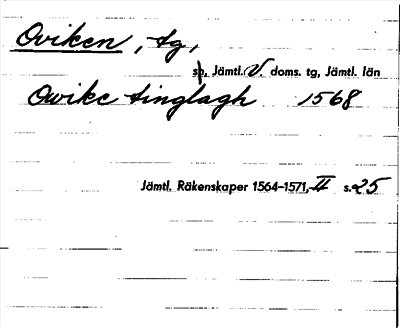 Oviken, tg,
sn, Jämtl. V. doms. tg, Jämtl. län
Owike tinglagh 1568
Jämtl. Räkenskaper 1564–1571, II s. 25